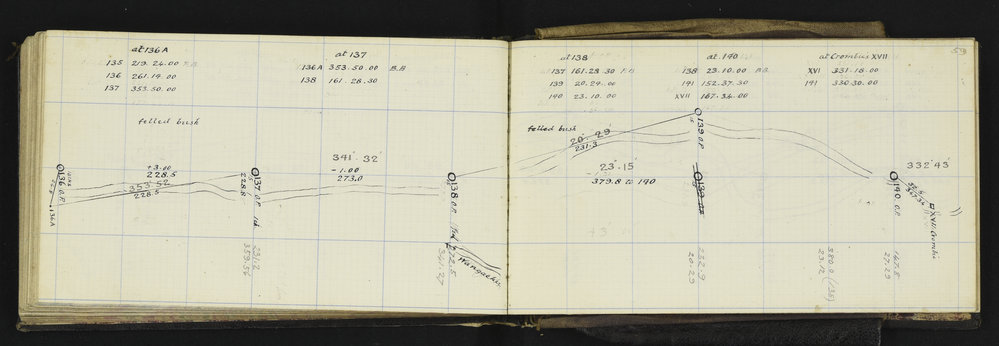 at 136 A
135 219.24.00 F.B
136 261.19.00
137 353.50.00
felled bush
at 137
136A 353.50.00 B.B
138 161.28.30
136 O.P.
136A
+3.00
228.5
353.52
228.5
228.8
137 O.P.
231.2
353.56
341° 32'
-1.00
273.0
138 O.P.
272.5
341.27
Wangaehu
at 138
137 161.28 30 F.B
139 20.29.00
190 23.10.00
felled bush
20° 29'
231.3
23° 15'
379.8 to 190
at 190
138 23.10.00 B.B
191 152.37.30
XVII 167.34.00
139 O.P.
139 O.P.
232.9
20.29
at Crombies XVII
XVI 331.18.00
191 330.30.00
59
332° 43'
190 O.P.
XVII Crombie
+3
380.0 (138)
23.12
167.5
27.29